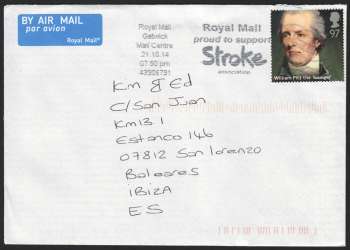 BY AIR MAIL
par avion
Royal Mail®
Royal Mail
Gatwick
Mail Centre
21.10.14
07:50 pm
43905751
Royal Mail
proud to support
Stroke
association
97
William Pitt the Younger
Km & Ed
C/San Juan
Km13 1
Estanco 146
07812 San Lorenzo
Baleares
IBIZA
ES